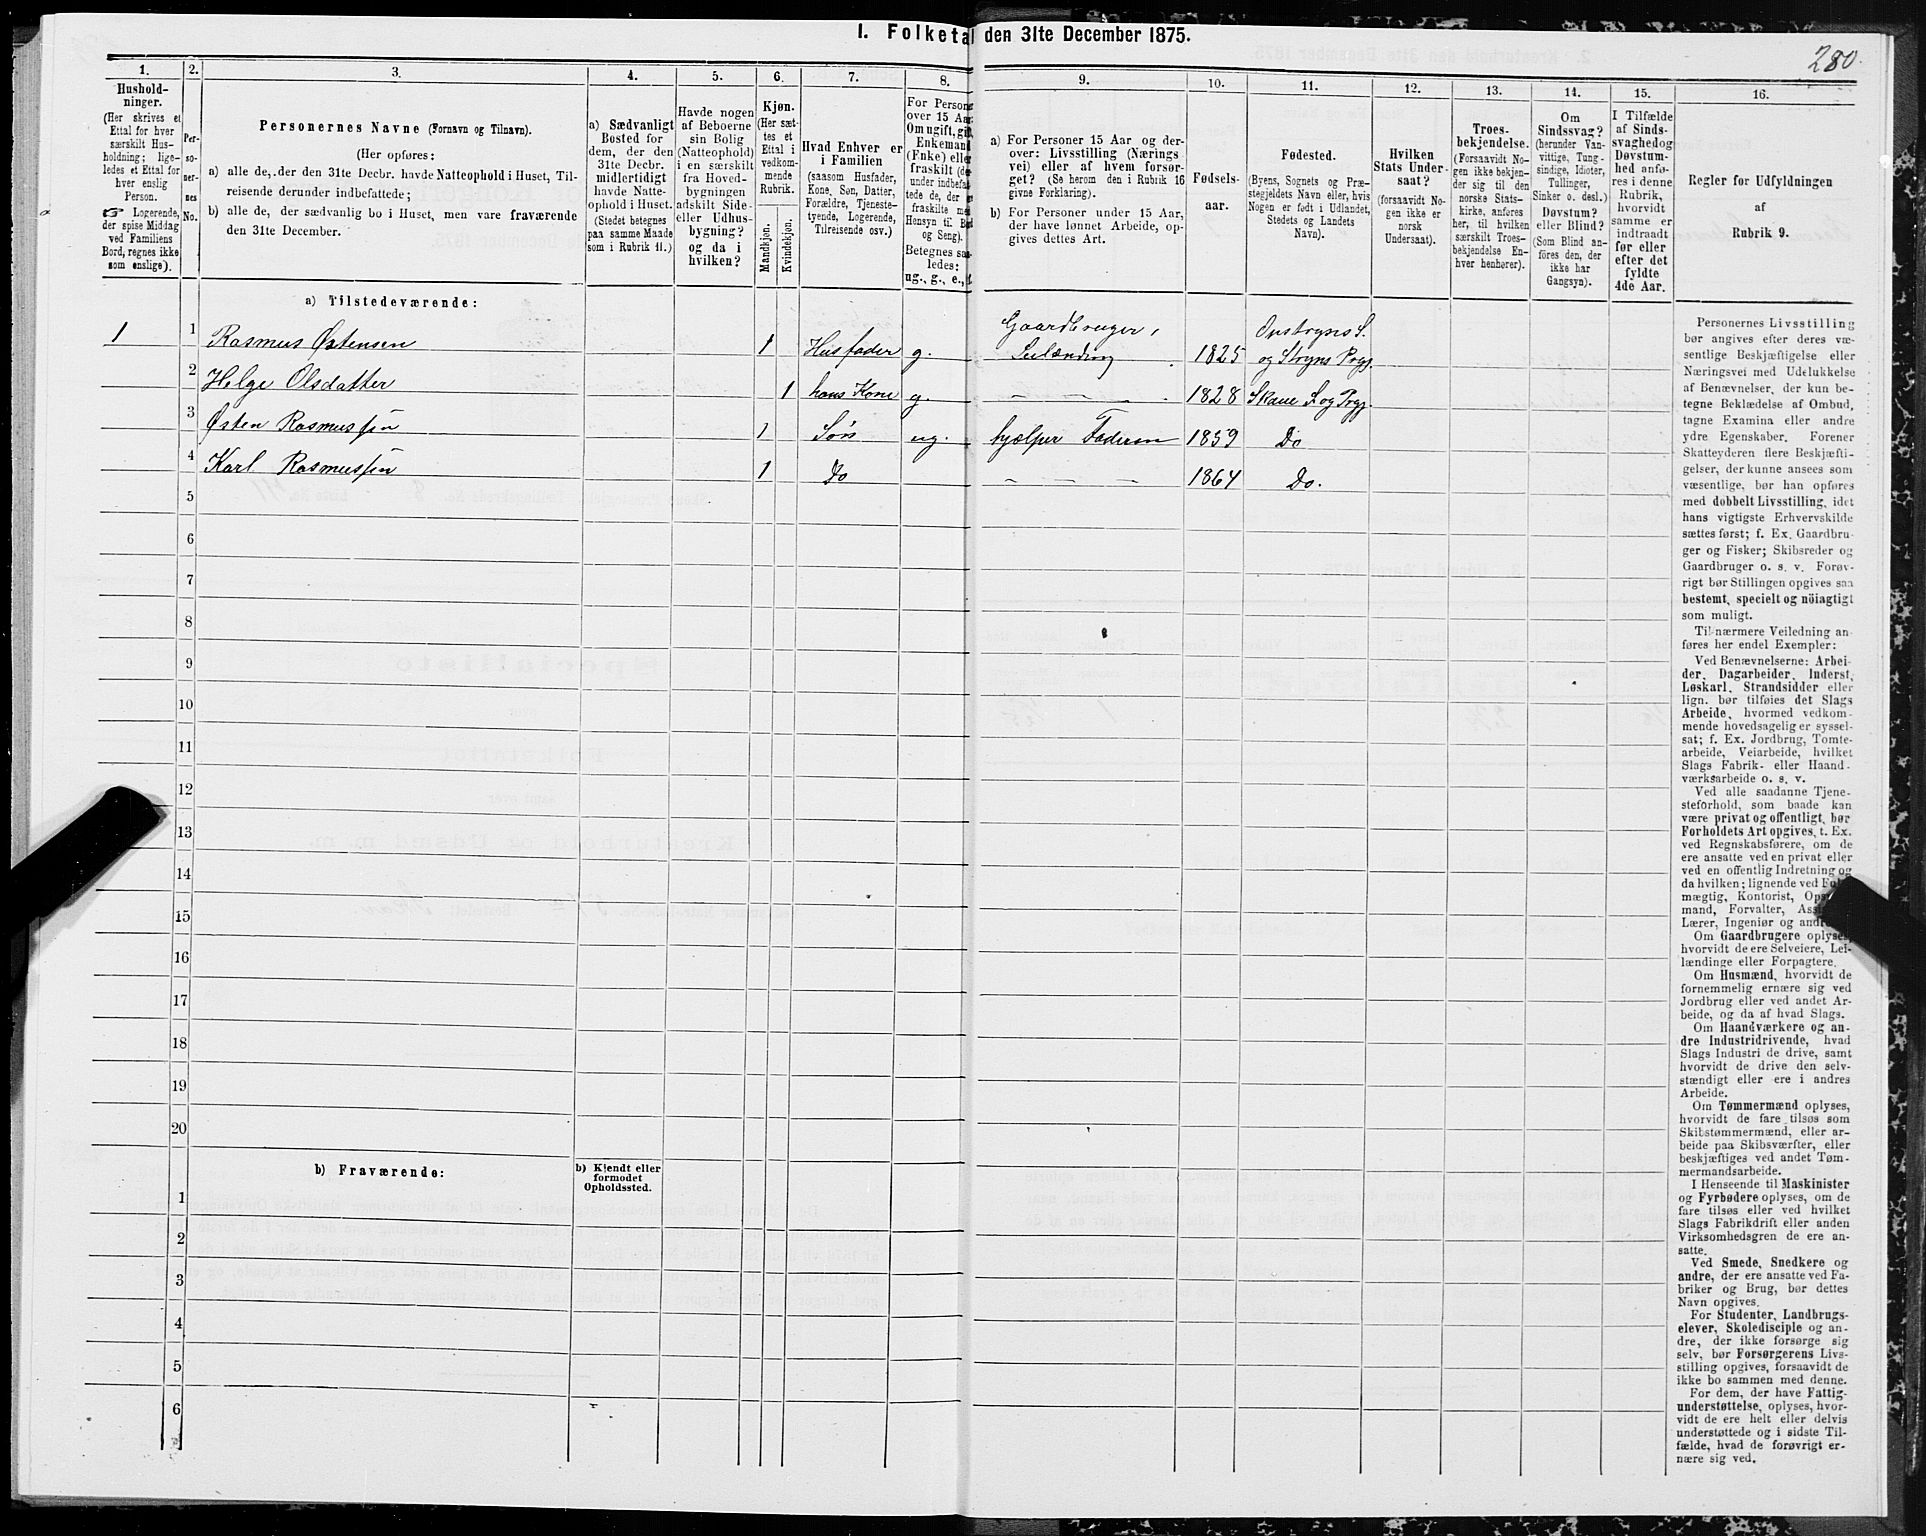 1. Folketal den 31te December 1875.
280.
1.
Hushold-
ninger.
(Her skrives et
Ettal for hver
særskilt Hus-
holdning; lige-
ledes et Ettal for
hver enslig
Person.
☞ Logerende,
der spise Middag
ved Familiens
Bord, regnes ikke
som enslige).
2.
Per-
so-
ner-
nes
No.
3.
Personernes Navne (Fornavn og Tilnavn).
(Her opføres:
a) alle de, der den 31te Decbr. havde Natteophold i Huset, Til-
reisende derunder indbefattede;
b) alle de, der sædvanlig bo i Huset, men vare fraværende
den 31te December.
4.
a) Sædvanligt
Bosted for
dem, der den
31te Decbr.
midlertidigt
havde Natte-
ophold i Huset.
(Stedet betegnes
paa samme Maade
som i Rubrik 11.)
5.
Havde nogen
af Beboerne
sin Bolig
(Natteophold)
i en særskilt
fra Hoved-
bygningen
adskilt Side-
eller Udhus-
bygning?
og da i
hvilken?
6.
Kjøn.
(Her sæt-
tes et
Ettal i
vedkom-
mende
Rubrik.
Mandkjøn.
Kvindekjøn.
7.
Hvad Enhver er
i Familien
(saasom Husfader,
Kone, Søn, Datter,
Forældre, Tjeneste-
tyende, Logerende,
Tilreisende osv.)
8.
For Persone
over 15 Aar
Om ugift, gift
Enkemand
(Enke) eller
fraskilt (de
under indbefat
tede de, der e
fraskilte me
Hensyn til Bo
og Seng).
Betegnes saa
ledes:
ug., g., e., f.
9.
a) For Personer 15 Aar og der-
over: Livsstilling (Nærings-
vei) eller af hvem forsør-
get? (Se herom den i Rubrik 16
givne Forklaring).
b) For Personer under 15 Aar,
der have lønnet Arbeide, op-
gives dettes Art.
10.
Fødsels-
aar.
11.
Fødested.
(Byens, Sognets og Præ-
stegjeldets Navn eller, hvis
Nogen er født i Udlandet,
Stedets og Landets
Navn).
12.
Hvilken
Stats Under-
saat?
(forsaavidt No-
gen ikke er
norsk
Undersaat).
13.
Troes-
bekjendelse.
(Forsaavidt No-
gen ikke bekjen-
der sig til den
norske Stats-
kirke, anføres
her, til hvilken
særskilt Troes-
bekjendelse En-
hver henhører).
14.
Om
Sindssvag?
(herunder Van-
vittige, Tung-
sindige, Idioter,
Tullinger,
Sinker o. desl.)
Døvstum?
eller Blind?
(Som Blind an-
føres den, der
ikke har
Gangsyn).
15.
I Tilfælde
af Sinds-
svaghedog
Døvstum-
hed anfø-
res i denne
Rubrik,
hvorvidt
samme er
indtraadt
før eller
efter det
fyldte
4de Aar.
16.
Regler for Udfyldningen
af
Rubrik 9.
a) Tilstedeværende:
1 1 Rasmus Østensen 1 Husfader g. Gaardbruger, Leilænding 1825 Opstryns S. og Stryns Prgj.
2 Helge Olsdatter 1 hans Kone g. – – – 1828 Skaue S og Prgj.
3 Østen Rasmussøn 1 Søn ug. hjælper Faderen 1859 Do
4 Karl Rasmussøn 1 Do – – – 1864 Do.
5
6
7
8
9
10
11
12
13
14
15
16
17
18
19
20
b) Fraværende:
b) Kjendt eller
formodet
Opholdssted.
1
2
3
4
5
6
Personernes Livsstilling
bør angives efter deres væ-
sentlige Beskjæftigelse eller
Næringsvei med Udelukkelse
af Benævnelser, der kun be-
tegne Beklædelse af Ombud,
tagne Examina eller andre
ydre Egenskaber. Forener
Skatteyderen flere Beskjæfti-
gelser, der kunne ansees som
væsentlige, bør han opføres
med dobbelt Livsstilling, idet
hans vigtigste Erhvervskilde
sættes først; f. Ex. Gaardbru-
ger og Fisker; Skibsreder og
Gaardbruger o. s. v. Forøv-
rigt bør Stillingen opgives saa
bestemt, specielt og nöiagtigt
som muligt.
Til nærmere Veiledning an-
føres her endel Exempler:
Ved Benævnelserne: Arbei-
der, Dagarbeider, Inderst,
Løskarl, Strandsidder eller
lign. bør tilføies det Slags
Arbeide, hvormed vedkom-
mende hovedsagelig er syssel-
sat; f. Ex. Jordbrug, Tomte-
arbeide, Veiarbeide, hvilket
Slags Fabrik- eller Haand-
værksarbeide o. s. v.
Ved alle saadanne Tjene-
steforhold, som baade kan
være privat og offentligt, bør
Forholdets Art opgives, t. Ex.
ved Regnskabsførere, om de
ere ansatte ved en privat eller
ved en offentlig Indretning og
da hvilken; lignende ved Ful
mægtig, Kontorist, Ops
mand, Forvalter, Ass
Lærer, Ingeniør og andre
Om Gaardbrugere oplyses,
hvorvidt de ere Selveiere, Lei-
lændinge eller Forpagtere.
Om Husmænd, hvorvidt de
fornemmelig ernære sig ved
Jordbrug eller ved andet Ar-
beide, og da af hvad Slags.
Om Haandværkere og an-
dre Industridrivende, hvad
Slags Industri de drive, samt
hvorvidt de drive den selv-
stændigt eller ere i andres
Arbeide.
Om Tømmermænd oplyses,
hvorvidt de fare tilsøs som
Skibstømmermænd, eller ar-
beide paa Skibsværfter, eller
beskjæftiges ved andet Tøm-
mermandsarbeide.
I Henseende til Maskinister
og Fyrbødere oplyses, om de
fare tilsøs eller ved hvilket
Slags Fabrikdrift eller anden
Virksomhedsgren de ere an-
satte.
Ved Smede, Snedkere og
andre, der ere ansatte ved Fa-
briker og Brug, bør dettes
Navn opgives.
For Studenter, Landbrugs-
elever, Skoledisciple og an-
dre, der ikke forsørge sig
selv, bør Forsørgerens Livs-
stilling opgives, forsaavidt de
ikke bo sammen med denne.
For dem, der have Fattig-
understøttelse, oplyses, hvor-
vidt de ere helt eller delvis
understøttede og i sidste Til-
fælde, hvad de forøvrigt er-
nære sig ved.